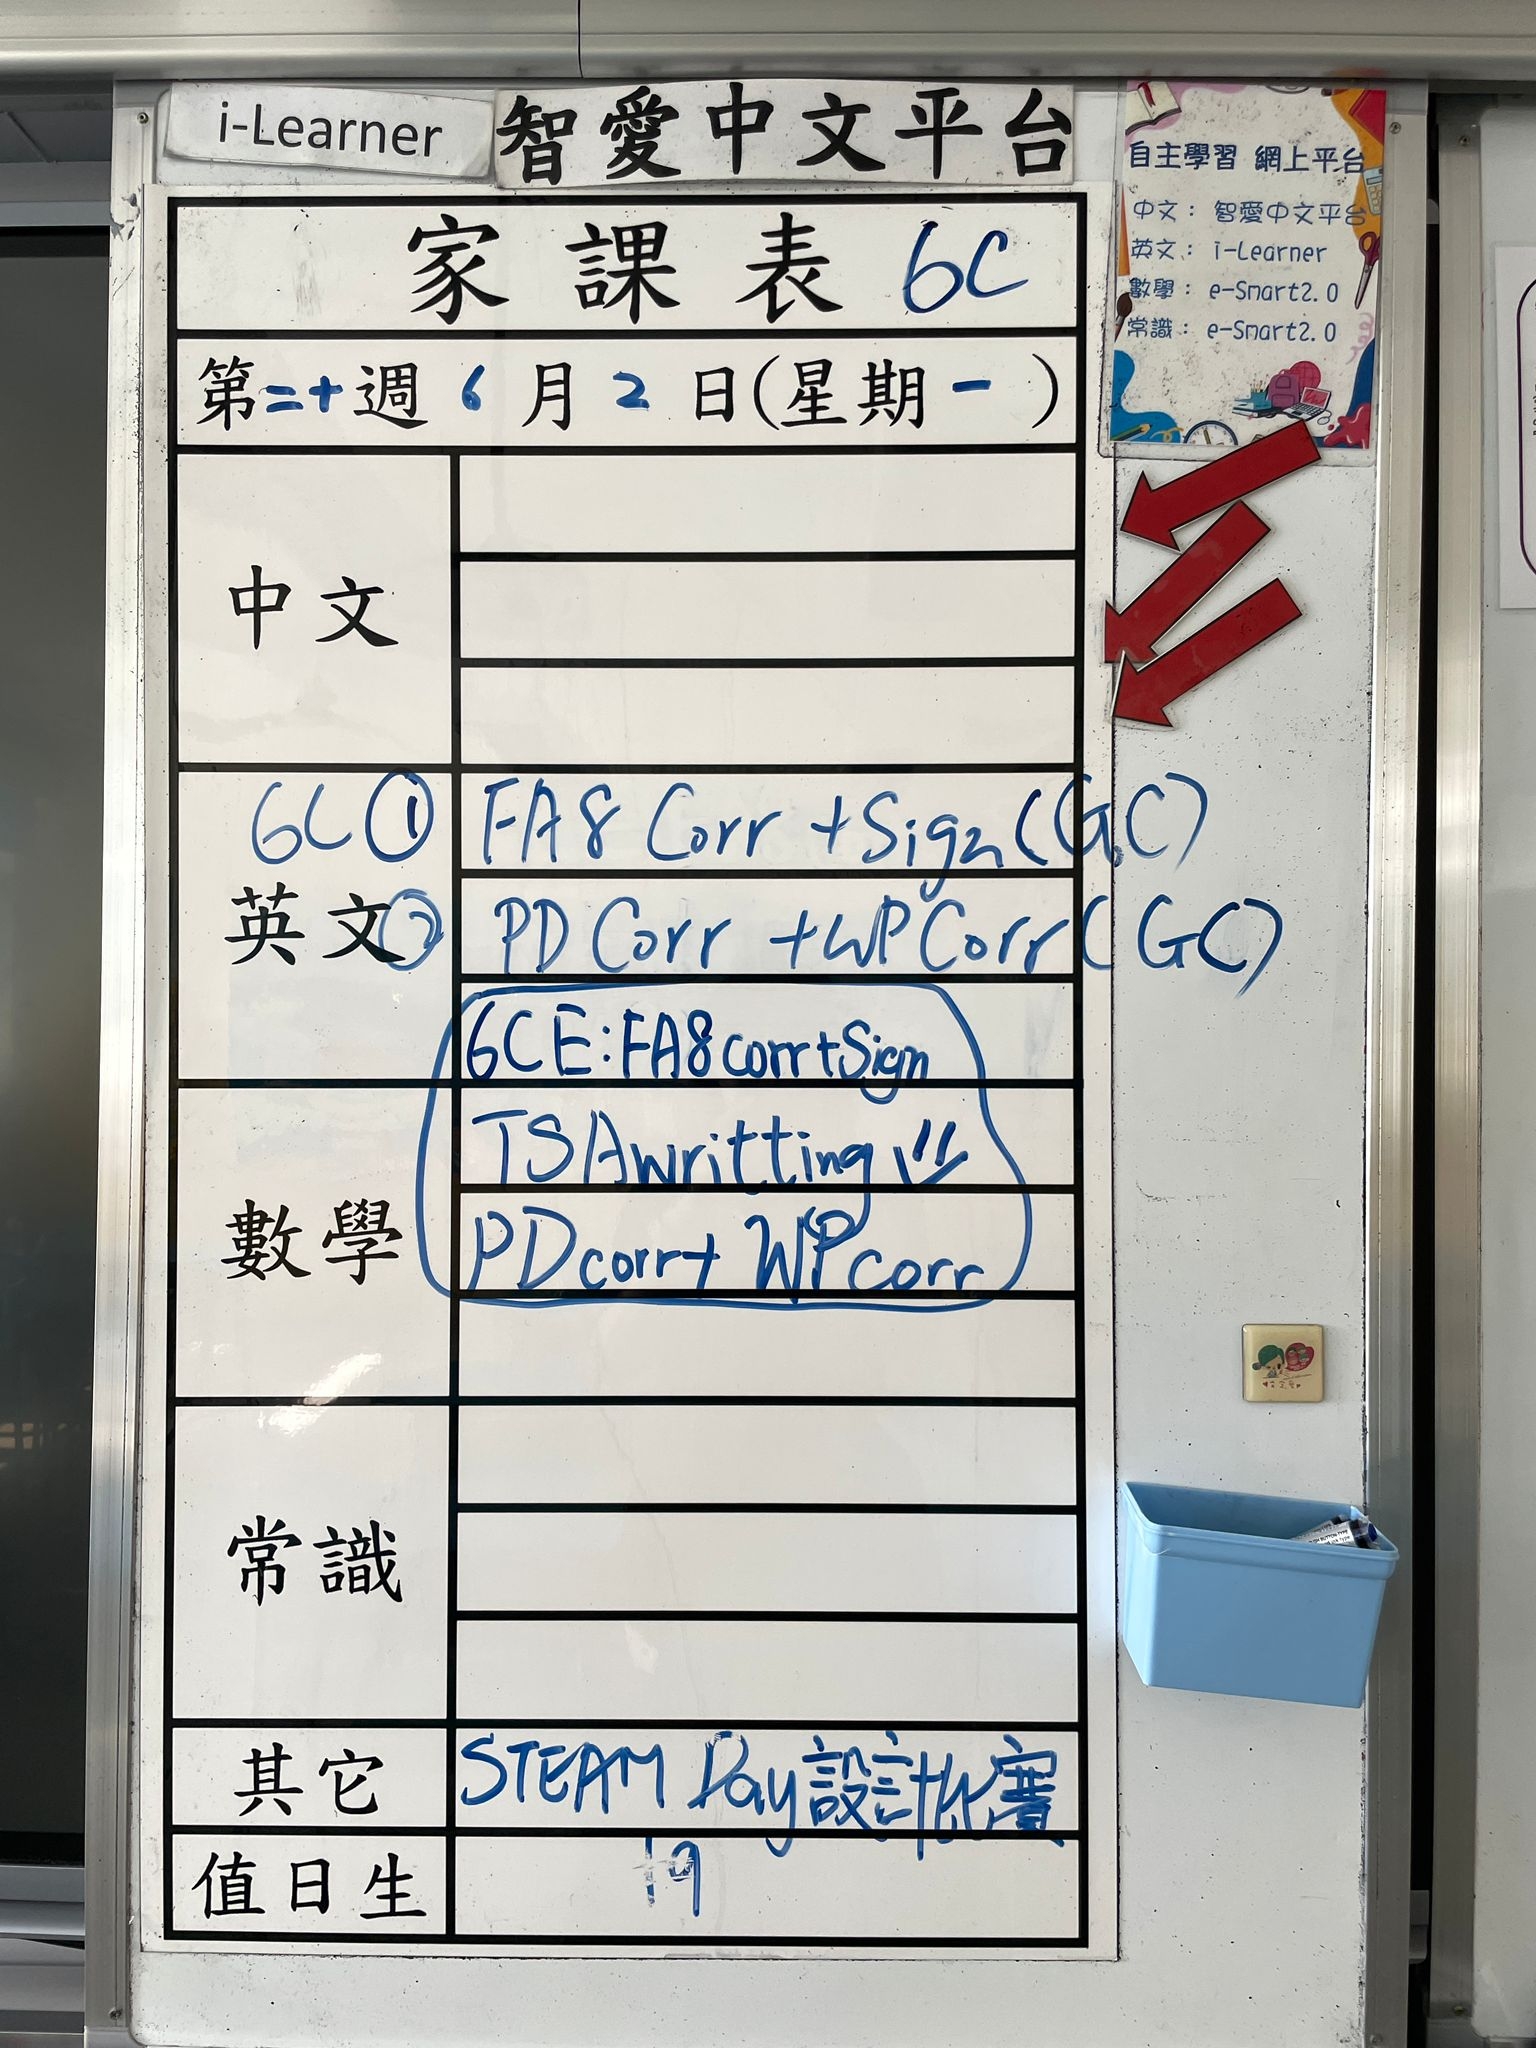 i-Learner 智愛中文平台
自主學習 網上平台
中文： 智愛中文平台
英文： i-Learner
數學： e-Smart2.0
常識： e-Smart2.0
家課表 6C
第二十週 6月2日(星期一)
中文
英文
6C ① FA8 Corr + Sign (GC)
② PD Corr + WP Corr (GC)
6CE: FA8 corr + Sign
數學
TSA writting
PD corr + WP corr
常識
其它 STEAM Day 設計比賽
值日生 19